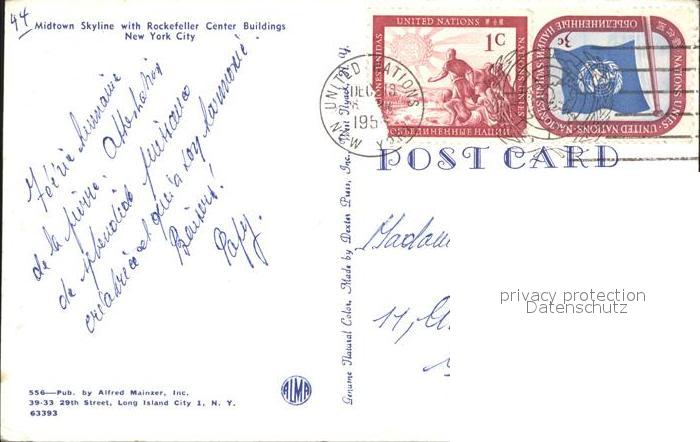 44
Midtown Skyline with Rockefeller Center Buildings
New York City
Féérie
de la pierre. Attestation
de splendide puissance
créatrice et qui a son harmonie!
Baisers!
Papy.
556—Pub. by Alfred Mainzer, Inc.
39-33 29th Street, Long Island City 1, N. Y.
63393
ALMA
Genuine Natural Color, Made by Dexter Press, Inc., West Nyack, N. Y.
UNITED NATIONS
1c
ОБЪЕДИНЕННЫЕ НАЦИИ
3c
ОБЪЕДИНЕННЫЕ НАЦИИ
NATIONS UNIES · UNITED NATIONS · NACIONES UNIDAS
UNITED NATIONS
DEC
195
N.Y.
POST CARD
Madam
privacy protection
Datenschutz